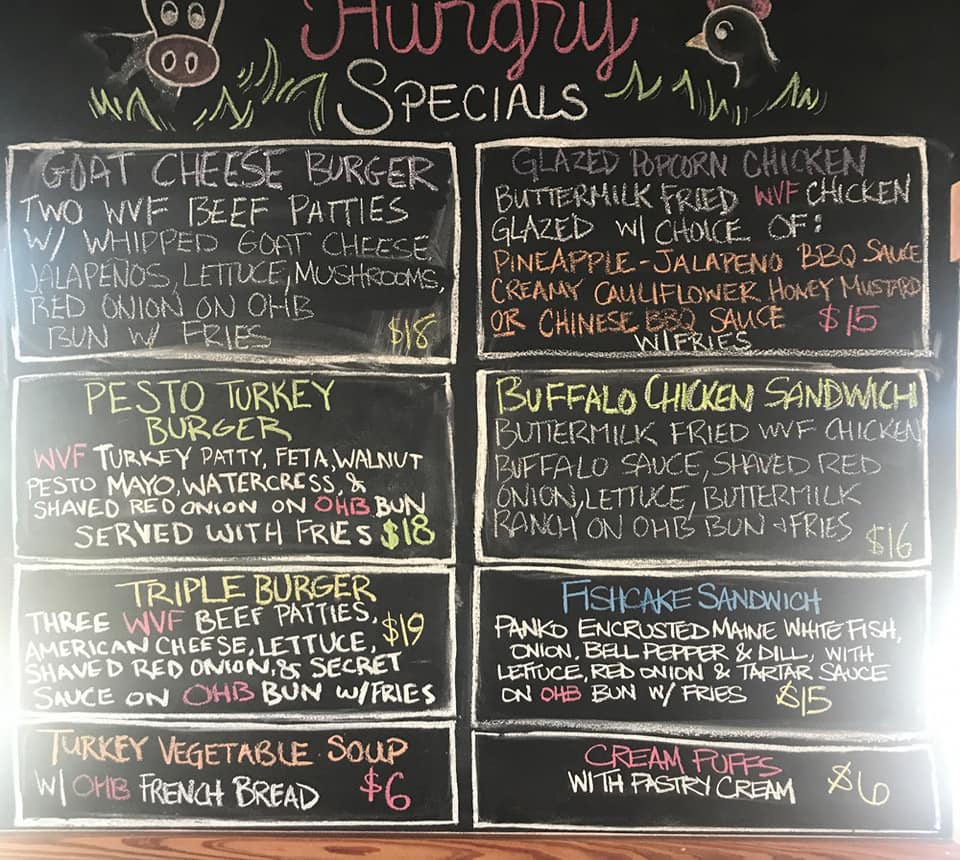 Hungry
SPECIALS
GOAT CHEESE BURGER
TWO WVF BEEF PATTIES
W/ WHIPPED GOAT CHEESE,
JALAPEÑOS, LETTUCE, MUSHROOMS,
RED ONION ON OHB
BUN W/ FRIES $18
GLAZED POPCORN CHICKEN
BUTTERMILK FRIED WVF CHICKEN
GLAZED W/ CHOICE OF:
PINEAPPLE-JALAPENO BBQ SAUCE
CREAMY CAULIFLOWER HONEY MUSTARD
OR CHINESE BBQ SAUCE $15
W/FRIES
PESTO TURKEY
BURGER
WVF TURKEY PATTY, FETA, WALNUT
PESTO MAYO, WATERCRESS, &
SHAVED RED ONION ON OHB BUN
SERVED WITH FRIES $18
BUFFALO CHICKEN SANDWICH
BUTTERMILK FRIED WVF CHICKEN
BUFFALO SAUCE, SHAVED RED
ONION, LETTUCE, BUTTERMILK
RANCH ON OHB BUN + FRIES $16
TRIPLE BURGER
THREE WVF BEEF PATTIES, $19
AMERICAN CHEESE, LETTUCE,
SHAVED RED ONION, & SECRET
SAUCE ON OHB BUN W/FRIES
FISHCAKE SANDWICH
PANKO ENCRUSTED MAINE WHITE FISH,
ONION, BELL PEPPER & DILL, WITH
LETTUCE, RED ONION & TARTAR SAUCE
ON OHB BUN W/ FRIES $15
TURKEY VEGETABLE SOUP
W/ OHB FRENCH BREAD $6
CREAM PUFFS
WITH PASTRY CREAM $6